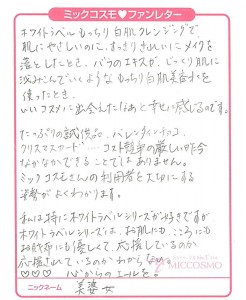 ミックコスモ♥ファンレター
ホワイトラベル もっちり白肌クレンジングで
肌にやさしいのに、すっきりきれいにメイクを
落としたとき、バラのエキスが、じっくり肌に
染みこんでいくような もっちり白肌美容水を
使ったとき、
いいコスメに出会えたなぁと幸せに感じるのです。
たっぷりの試供品、バレンタインチョコ、
クリスマスカード……コスト競争の厳しい昨今
なかなかできることではありません。
ミックコスモさんの利用者を大切にする
姿勢がよくわかります。
私は特にホワイトラベルシリーズが好きですが
ホワイトラベルシリーズは、お肌にも、こころにも
お財布にも優しくて、応援しているのか
応援されているのかわからない
♡♡♡ バラからのエールを。
MICCOSMO
ニックネーム 美婆女